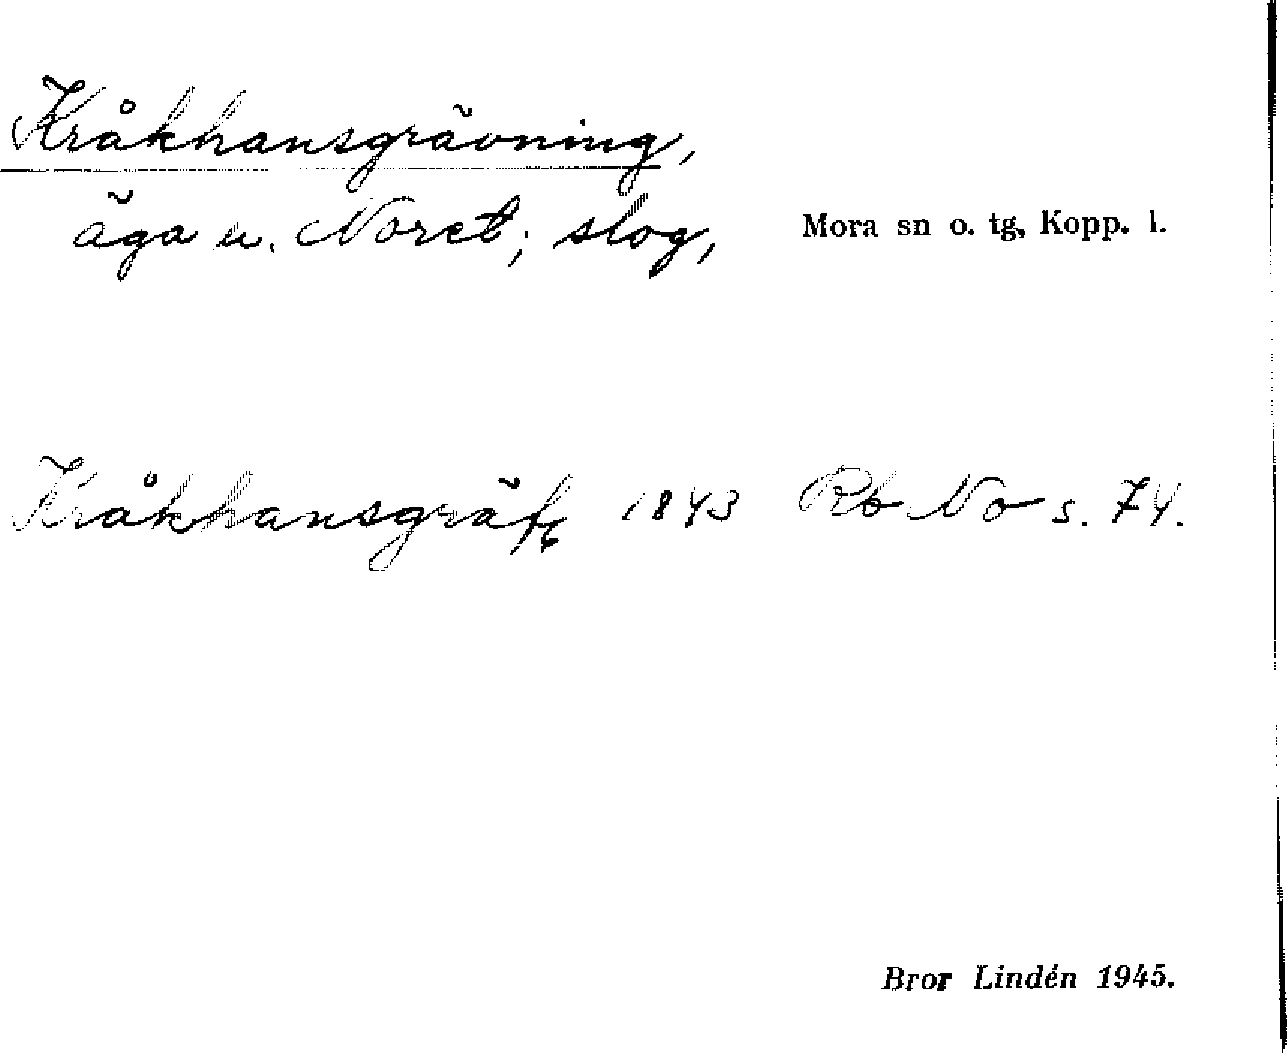 Kråkhansgrävning,
äga u. Noret; slog,
Mora sn o. tg, Kopp. l.
Kråkhansgräfg 1843 Rb No s. 74.
Bror Lindén 1945.